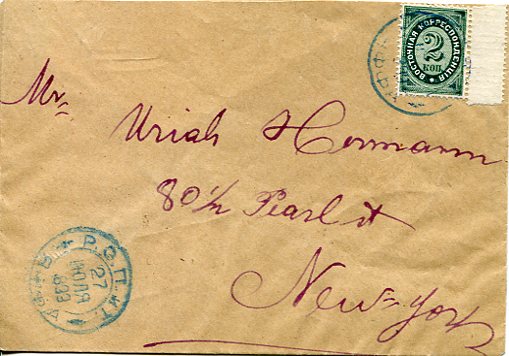 ВОСТОЧНАЯ КОРРЕСПОНДЕНЦІЯ
2
КОП.
Mr
Uriah Hermann
80½ Pearl st
New-York
Р.О.П.иТ.
27
ІЮЛЯ
893